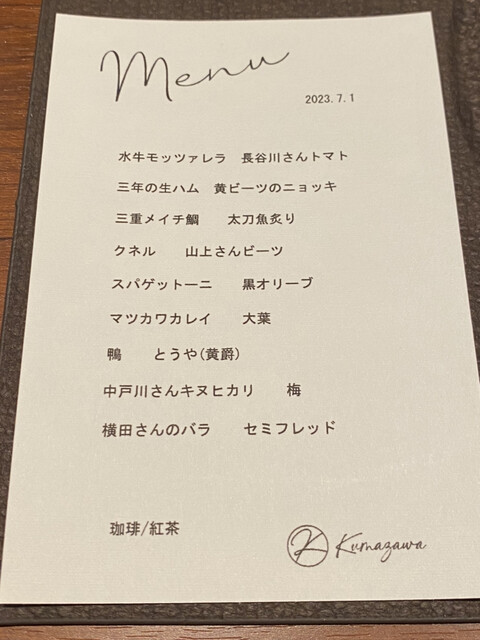 Menu
2023.7.1
水牛モッツァレラ　長谷川さんトマト
三年の生ハム　黄ビーツのニョッキ
三重メイチ鯛　　太刀魚炙り
クネル　　山上さんビーツ
スパゲットーニ　　黒オリーブ
マツカワカレイ　　大葉
鴨　　とうや(黄爵)
中戸川さんキヌヒカリ　　梅
横田さんのバラ　　セミフレッド
珈琲/紅茶
K Kumazawa